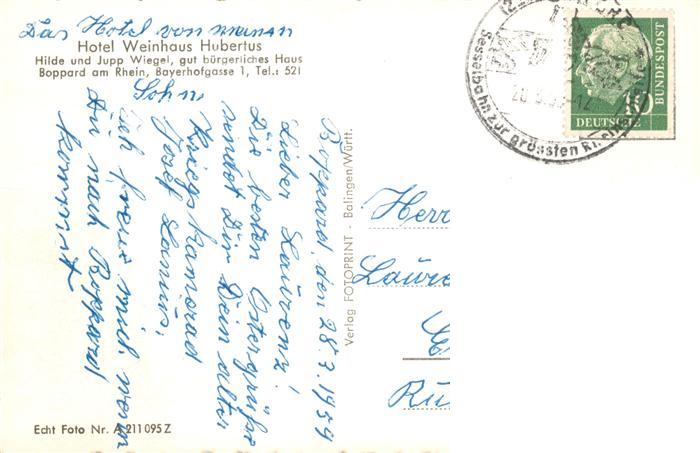 Das Hotel von meinem
Hotel Weinhaus Hubertus
Hilde und Jupp Wiegel, gut bürgerliches Haus
Boppard am Rhein, Bayerhofgasse 1, Tel.: 521
Sohn
Boppard, den 28.3.1959
Lieber Laurenz!
Die besten Ostergrüße
sendet Dir Dein alter
Kriegskamerad
Josef
Ich freue mich wenn
Du nach Boppard
kommst
Echt Foto Nr. A 211095 Z
Verlag FOTOPRINT - Balingen/Württ.
Herr
Laure
Ru
Sesselbahn zur grössten
DEUTSCHE
BUNDESPOST
10